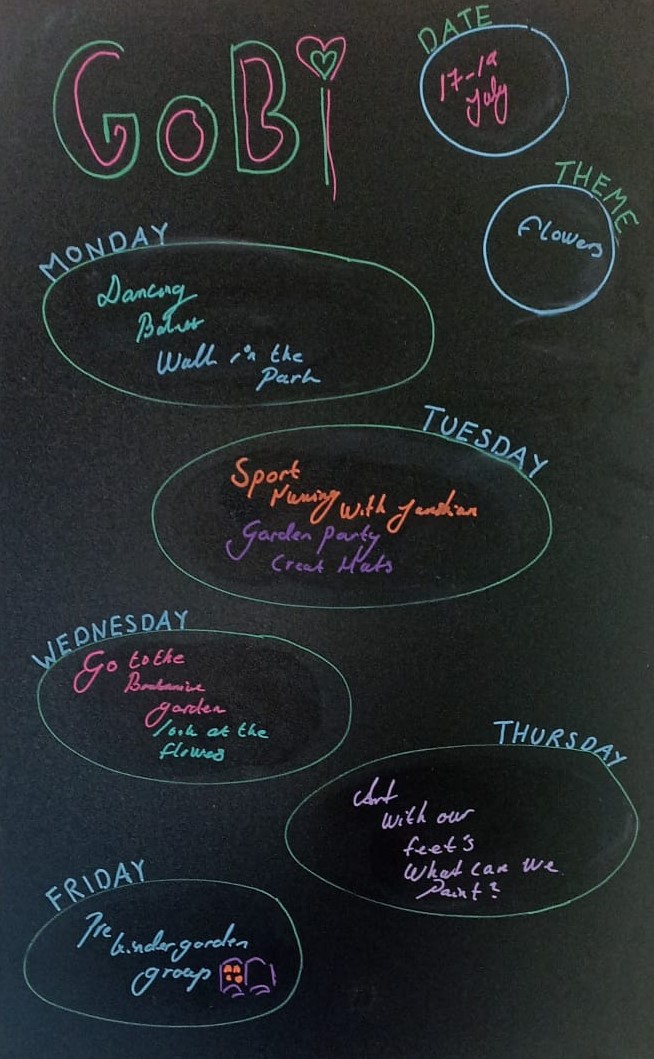 GoBi
DATE
17-19
July
THEME
flowers
MONDAY
Dancing
Walk in the
Park
TUESDAY
Sport
With
Garden party
Creat Hats
WEDNESDAY
Go to the
garden
look at the
THURSDAY
Art
With our
feet's
What can we
Paint?
FRIDAY
Pre
kindergarden
group